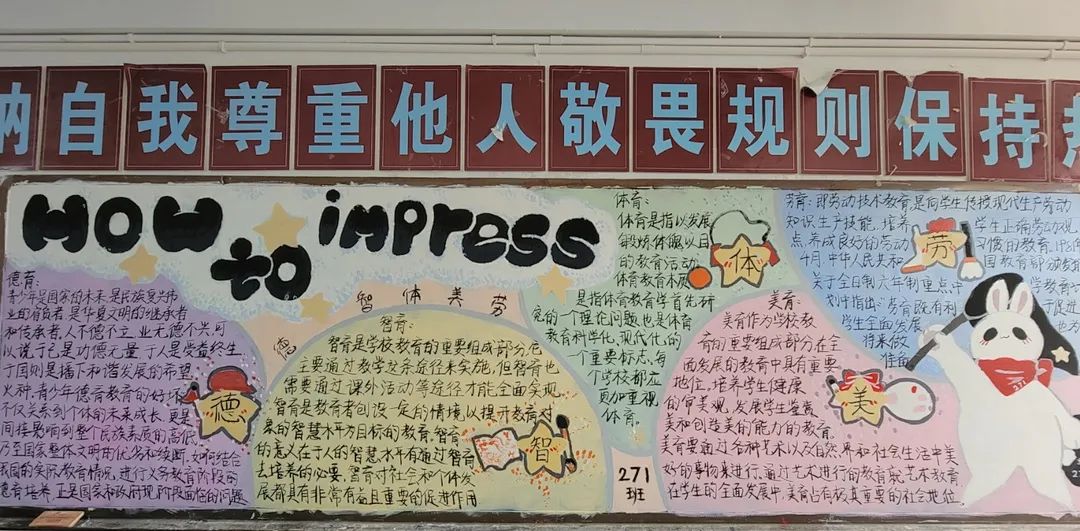 纳自我尊重他人敬畏规则保持热
HOW to impress
德 智 体 美 劳
德育:
青少年是国家的未来,是民族复兴伟
业的肩负者,是华夏文明的继承者
和传承者,人不德不立,业无德不兴,可
以说于己是功德无量,于人是受益终生
于国则是播下和谐发展的希望
火种,青少年德育教育的好坏
不仅关系到个体的未来成长,更是
间接影响到整个民族素质的高低,
乃至国家整体文明的优劣和续断,如何结合
我国的实际教育情况,进行义务教育阶段的
德育培养,正是国家和政府现阶段面临的问题
德
智育:
智育是学校教育的重要组成部分,它
主要通过教学这条途径来实施,但智育也
需要通过课外活动等途径才能全面实现
智育是教育者创设一定的情境,以提升教育对
象的智慧水平为目标的教育,智育
的意义在于人的智慧水平有通过智育
去培养的必要,智育对社会和个体发
展都具有非常有益且重要的促进作用
智
体育:
体育是指以发展
锻炼体能以目
的教育活动
体育教育本质
是指体育教育学首先研
究的一个理论问题,也是体育
教育科学化,现代化的
一个重要标志,每
个学校都应
更加重视
体育.
体
271
班
美育:
美育作为学校教
育的重要组成部分在全
面发展的教育中具有重要
地位,培养学生健康
的审美观,发展学生鉴赏
美和创造美的能力的教育.
美育要通过各种艺术以及自然界和社会生活中美
好的事物来进行,通过艺术进行的教育就艺术教育
在学生的全面发展中,美育占有极其重要的社会地位.
美
劳育:即劳动技术教育,是向学生传授现代生产劳动
知识生产技能,培养学生正确劳动观
点,养成良好的劳动习惯的教育,
4月,中华人民共和国教育部颁发
关于全日制六年制重点中
划中指出:劳育既有利
学生全面发展
将来做
准备
劳
271